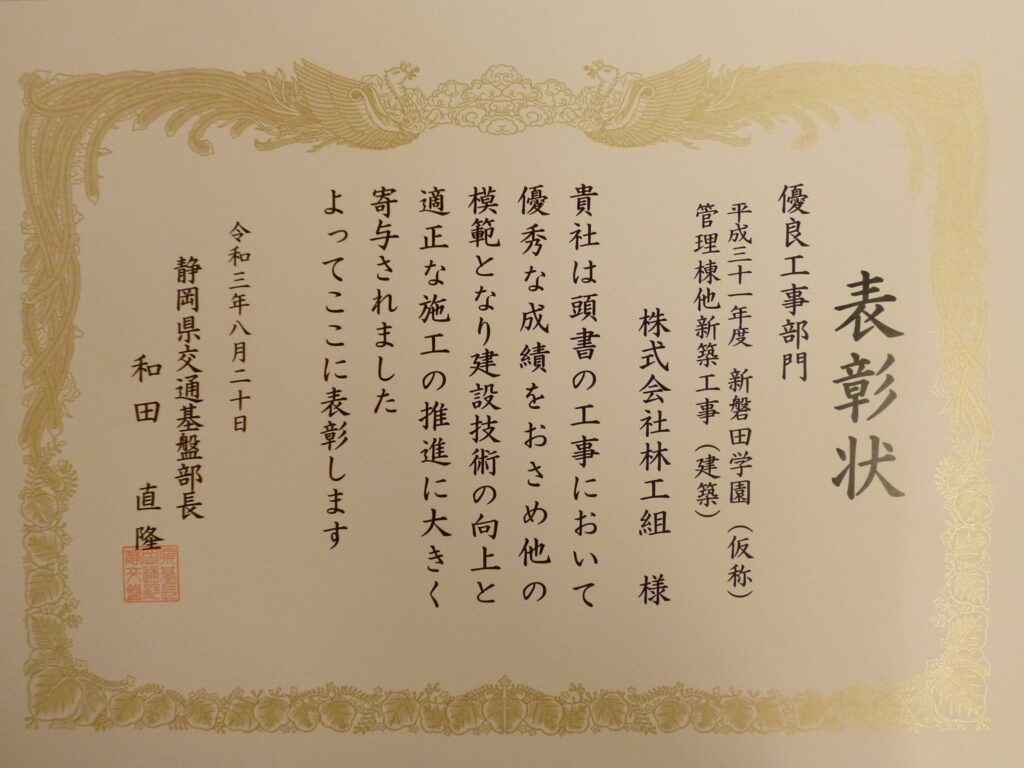 表彰状
優良工事部門
平成三十一年度 新磐田学園（仮称）
管理棟他新築工事（建築）
株式会社林工組 様
貴社は頭書の工事において
優秀な成績をおさめ他の
模範となり建設技術の向上と
適正な施工の推進に大きく
寄与されました
よってここに表彰します
令和三年八月二十日
静岡県交通基盤部長
和田 直隆